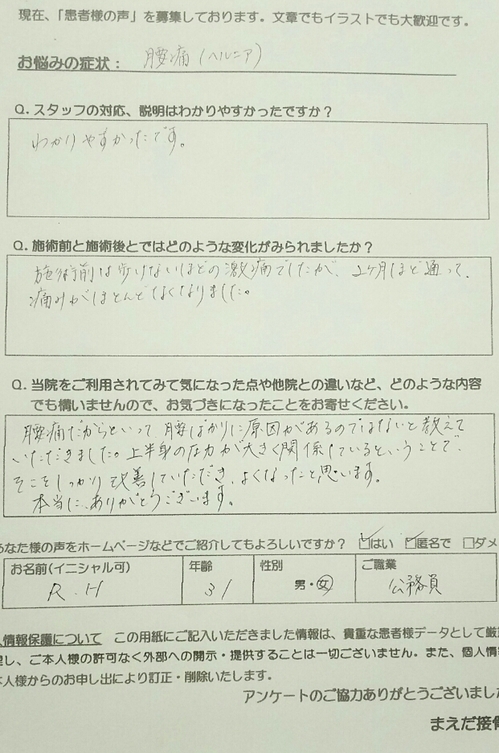 現在、「患者様の声」を募集しております。文章でもイラストでも大歓迎です。
お悩みの症状： 腰痛(ヘルニア)
Q. スタッフの対応、説明はわかりやすかったですか？
わかりやすかったです。
Q. 施術前と施術後とではどのような変化がみられましたか？
施術前は歩けないほどの激痛でしたが、2ヶ月ほど通って、
痛みがほとんどなくなりました。
Q. 当院をご利用されてみて気になった点や他院との違いなど、どのような内容
でも構いませんので、お気づきになったことをお寄せください。
腰痛だからといって腰ばかりに原因があるのではないと教えて
いただきました。上半身の左力が大きく関係しているということで、
そこをしっかり改善していただき、よくなったと思います。
本当に、ありがとうございます。
あなた様の声をホームページなどでご紹介してもよろしいですか？ ☑はい ☑匿名で □ダメ
お名前(イニシャル可) 年齢 性別 ご職業
R.H 31 男・女 公務員
人情報保護について この用紙にご記入いただきました情報は、貴重な患者様データとして厳
理し、ご本人様の許可なく外部への開示・提供することは一切ございません。また、個人情
本人様からのお申し出により訂正・削除いたします。
アンケートのご協力ありがとうございまし
まえだ接骨